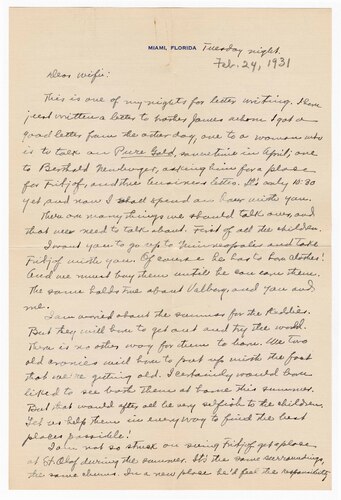 MIAMI, FLORIDA Tuesday night.
Feb. 24, 1931
Dear Wife:
This is one of my nights for letter writing. I have
just written a letter to James whom I got a
good letter from the other day, one to a woman who
is to talk on Pure Gold, sometime in April; one
to Berthold, asking him for a place
for Fritjof, and three business letters. It's only 10:30
yet and now I shall spend an hour with you.
There are many things we should talk over, and
that we need to talk about. First of all the children.
I want you to go up to Minneapolis and take
Fritjof with you. Of course he has to have clothes!
And we must buy them until he can earn them.
The same holds true about Valborg and you and
me.
I am worried about the summer for the kiddies.
But they will have to get out and try the world.
There is no other way for them to learn. We two
old cronies will have to put up with the fact
that we're getting old. I certainly would have
liked to see both them at home this summer.
But that would after all be very selfish to the children.
Let us help them in every way to find the best
places possible!
I am not so stuck on seeing Fritjof get a place
at St. Olaf during the summer. It's the same surroundings,
the same chums. In a new place he'd feel the responsibility